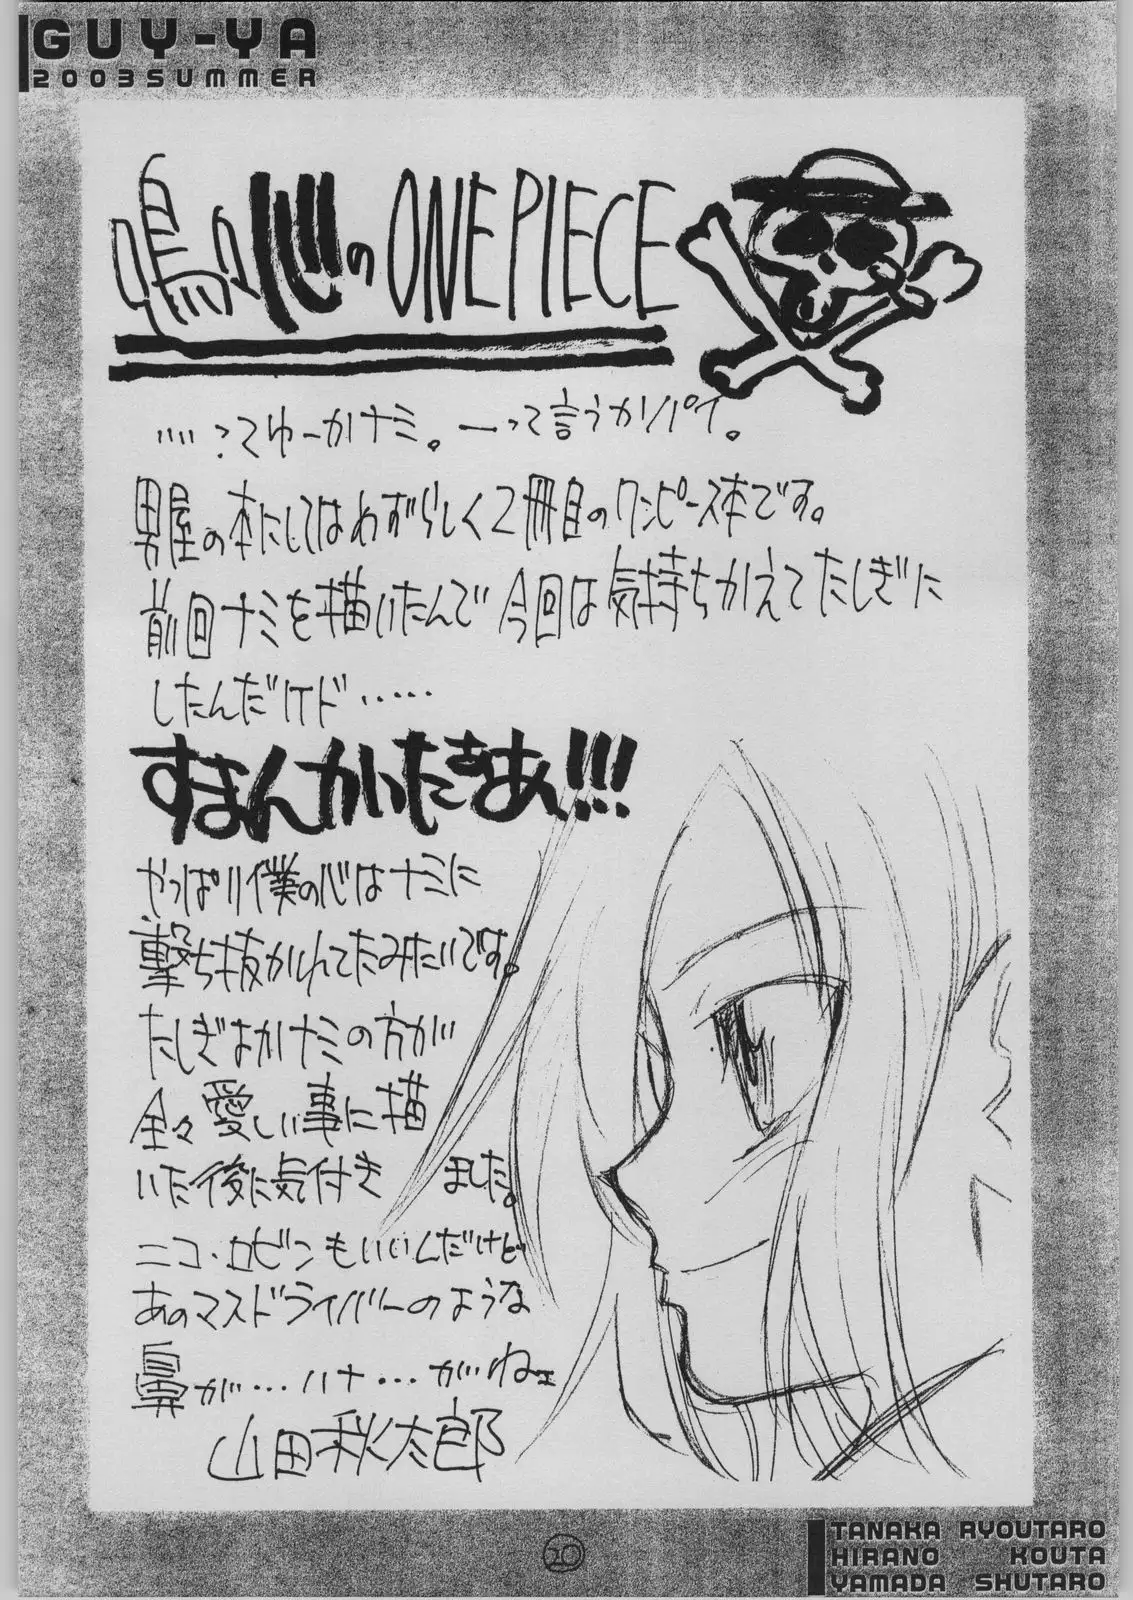 GUY-YA
2003SUMMER
心のONE PIECE
……ってゆーかナミ。―って言うかパイ。
男屋の本にしてはめずらしく2冊目のワンピース本です。
前回ナミを描いたんで今回は気持ちかえてたしぎに
したんだけド……
すまんかいたぁはん!!!
やっぱり僕の心はナミに
撃ち抜かれてたみたいです。
たしぎよかナミの方が
全々愛しい事に描
いた後に気付き ました。
ニコ・ロビンもいいんだけど
あのマスドライバーのような
鼻が…ハナ…がねェ
山田秋太郎
20
TANAKA RYOUTARO
HIRANO KOUTA
YAMADA SHUTARO